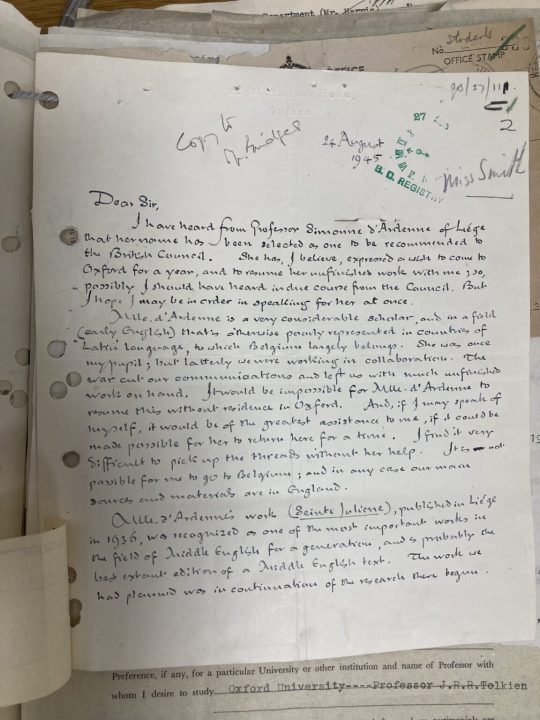 Department (Mr. Harris)
No. Students
OFFICE STAMP
OFFICE
2
Copy to
Mr. Bridges
24 August
1945
27
B.C. REGISTRY
Miss Smith
Dear Sir,
I have heard from Professor Simonne d'Ardenne of Liége
that her name has been selected as one to be recommended to
the British Council. She has, I believe, expressed a wish to come to
Oxford for a year, and to resume her unfinished work with me; so,
possibly I should have heard in due course from the Council. But
I hope I may be in order in speaking for her at once.
Mlle. d'Ardenne is a very considerable scholar, and in a field
(early English) that's otherwise poorly represented in countries of
Latin language, to which Belgium largely belongs. She was once
my pupil; but latterly we were working in collaboration. The
war cut our communications and left us with much unfinished
work on hand. It would be impossible for Mlle. d'Ardenne to
resume this without residence in Oxford. And, if I may speak of
myself, it would be of the greatest assistance to me, if it could be
made possible for her to return here for a time. I find it very
difficult to pick up the threads without her help. It is not
possible for me to go to Belgium; and in any case our main
sources and materials are in England.
Mlle. d'Ardenne's work (Seinte Juliene), published in Liége
in 1936, was recognized as one of the most important works in
the field of Middle English for a generation, and is probably the
best extant edition of a Middle English text. The work we
had planned was in continuation of the research there begun.
Preference, if any, for a particular University or other institution and name of Professor with
whom I desire to study Oxford University----Professor J.R.R.Tolkien